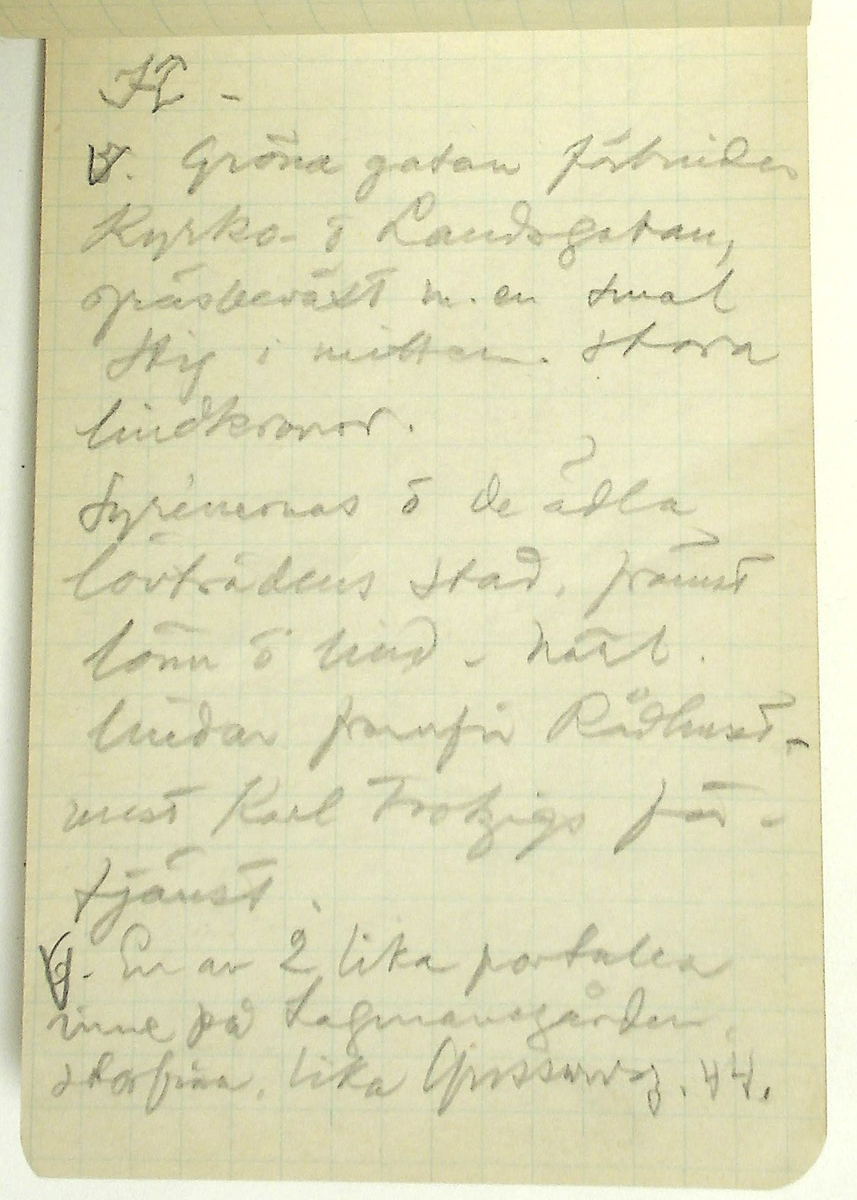 Gröna gatan förbinder
Kyrko- ö Landsgatan,
gräsbeväxt m. en smal
stig i mitten. Stora
lindkronor.
Syrenernas ö de ädla
lövträdens stad, främst
lönn ö lind -
lindar framför Rådhuset -
mest Karl Trotzigs för-
tjänst.
En av 2 lika portaler
inne på Lagmansgården,
storfina, lika 44.